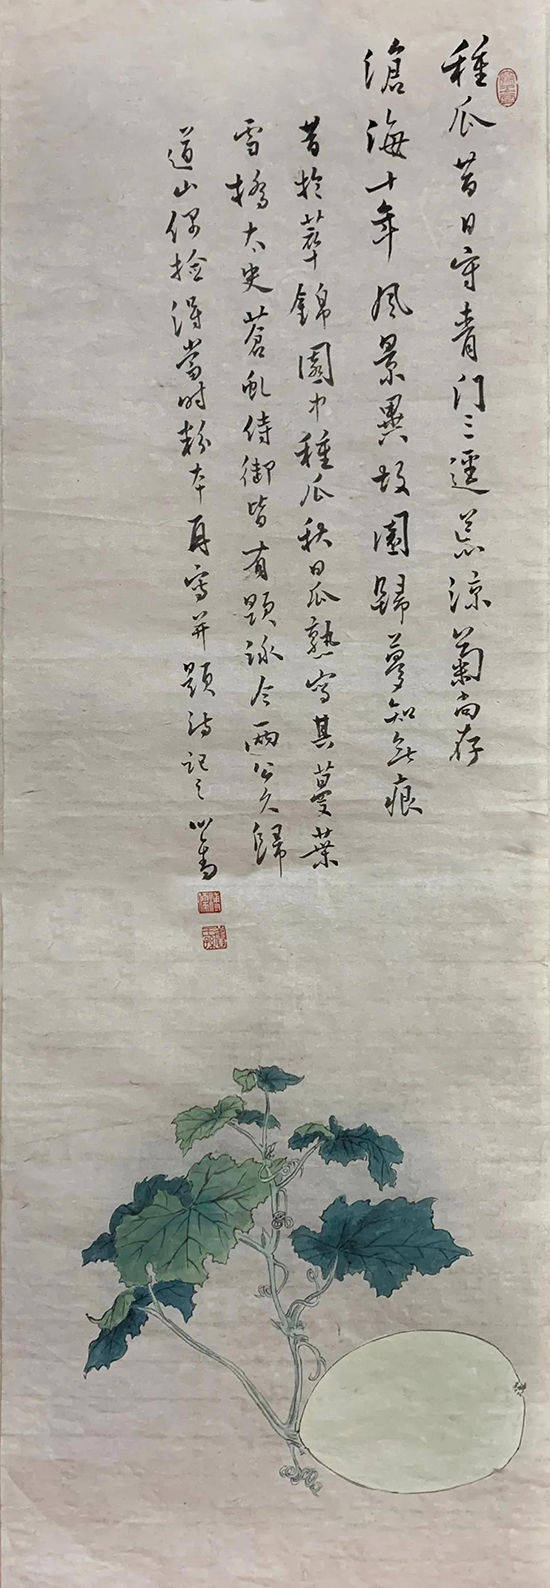 種瓜昔日守青门三逕荒涼菊尚存
滄海十年風景異故園歸夢知無痕
昔於萃錦園中種瓜秋日瓜熟寫其蔓葉
雪橋太史蒼虬侍御皆有題詠今兩公久歸
道山偶撿得當时粉本再寫并題詩記之 心畬